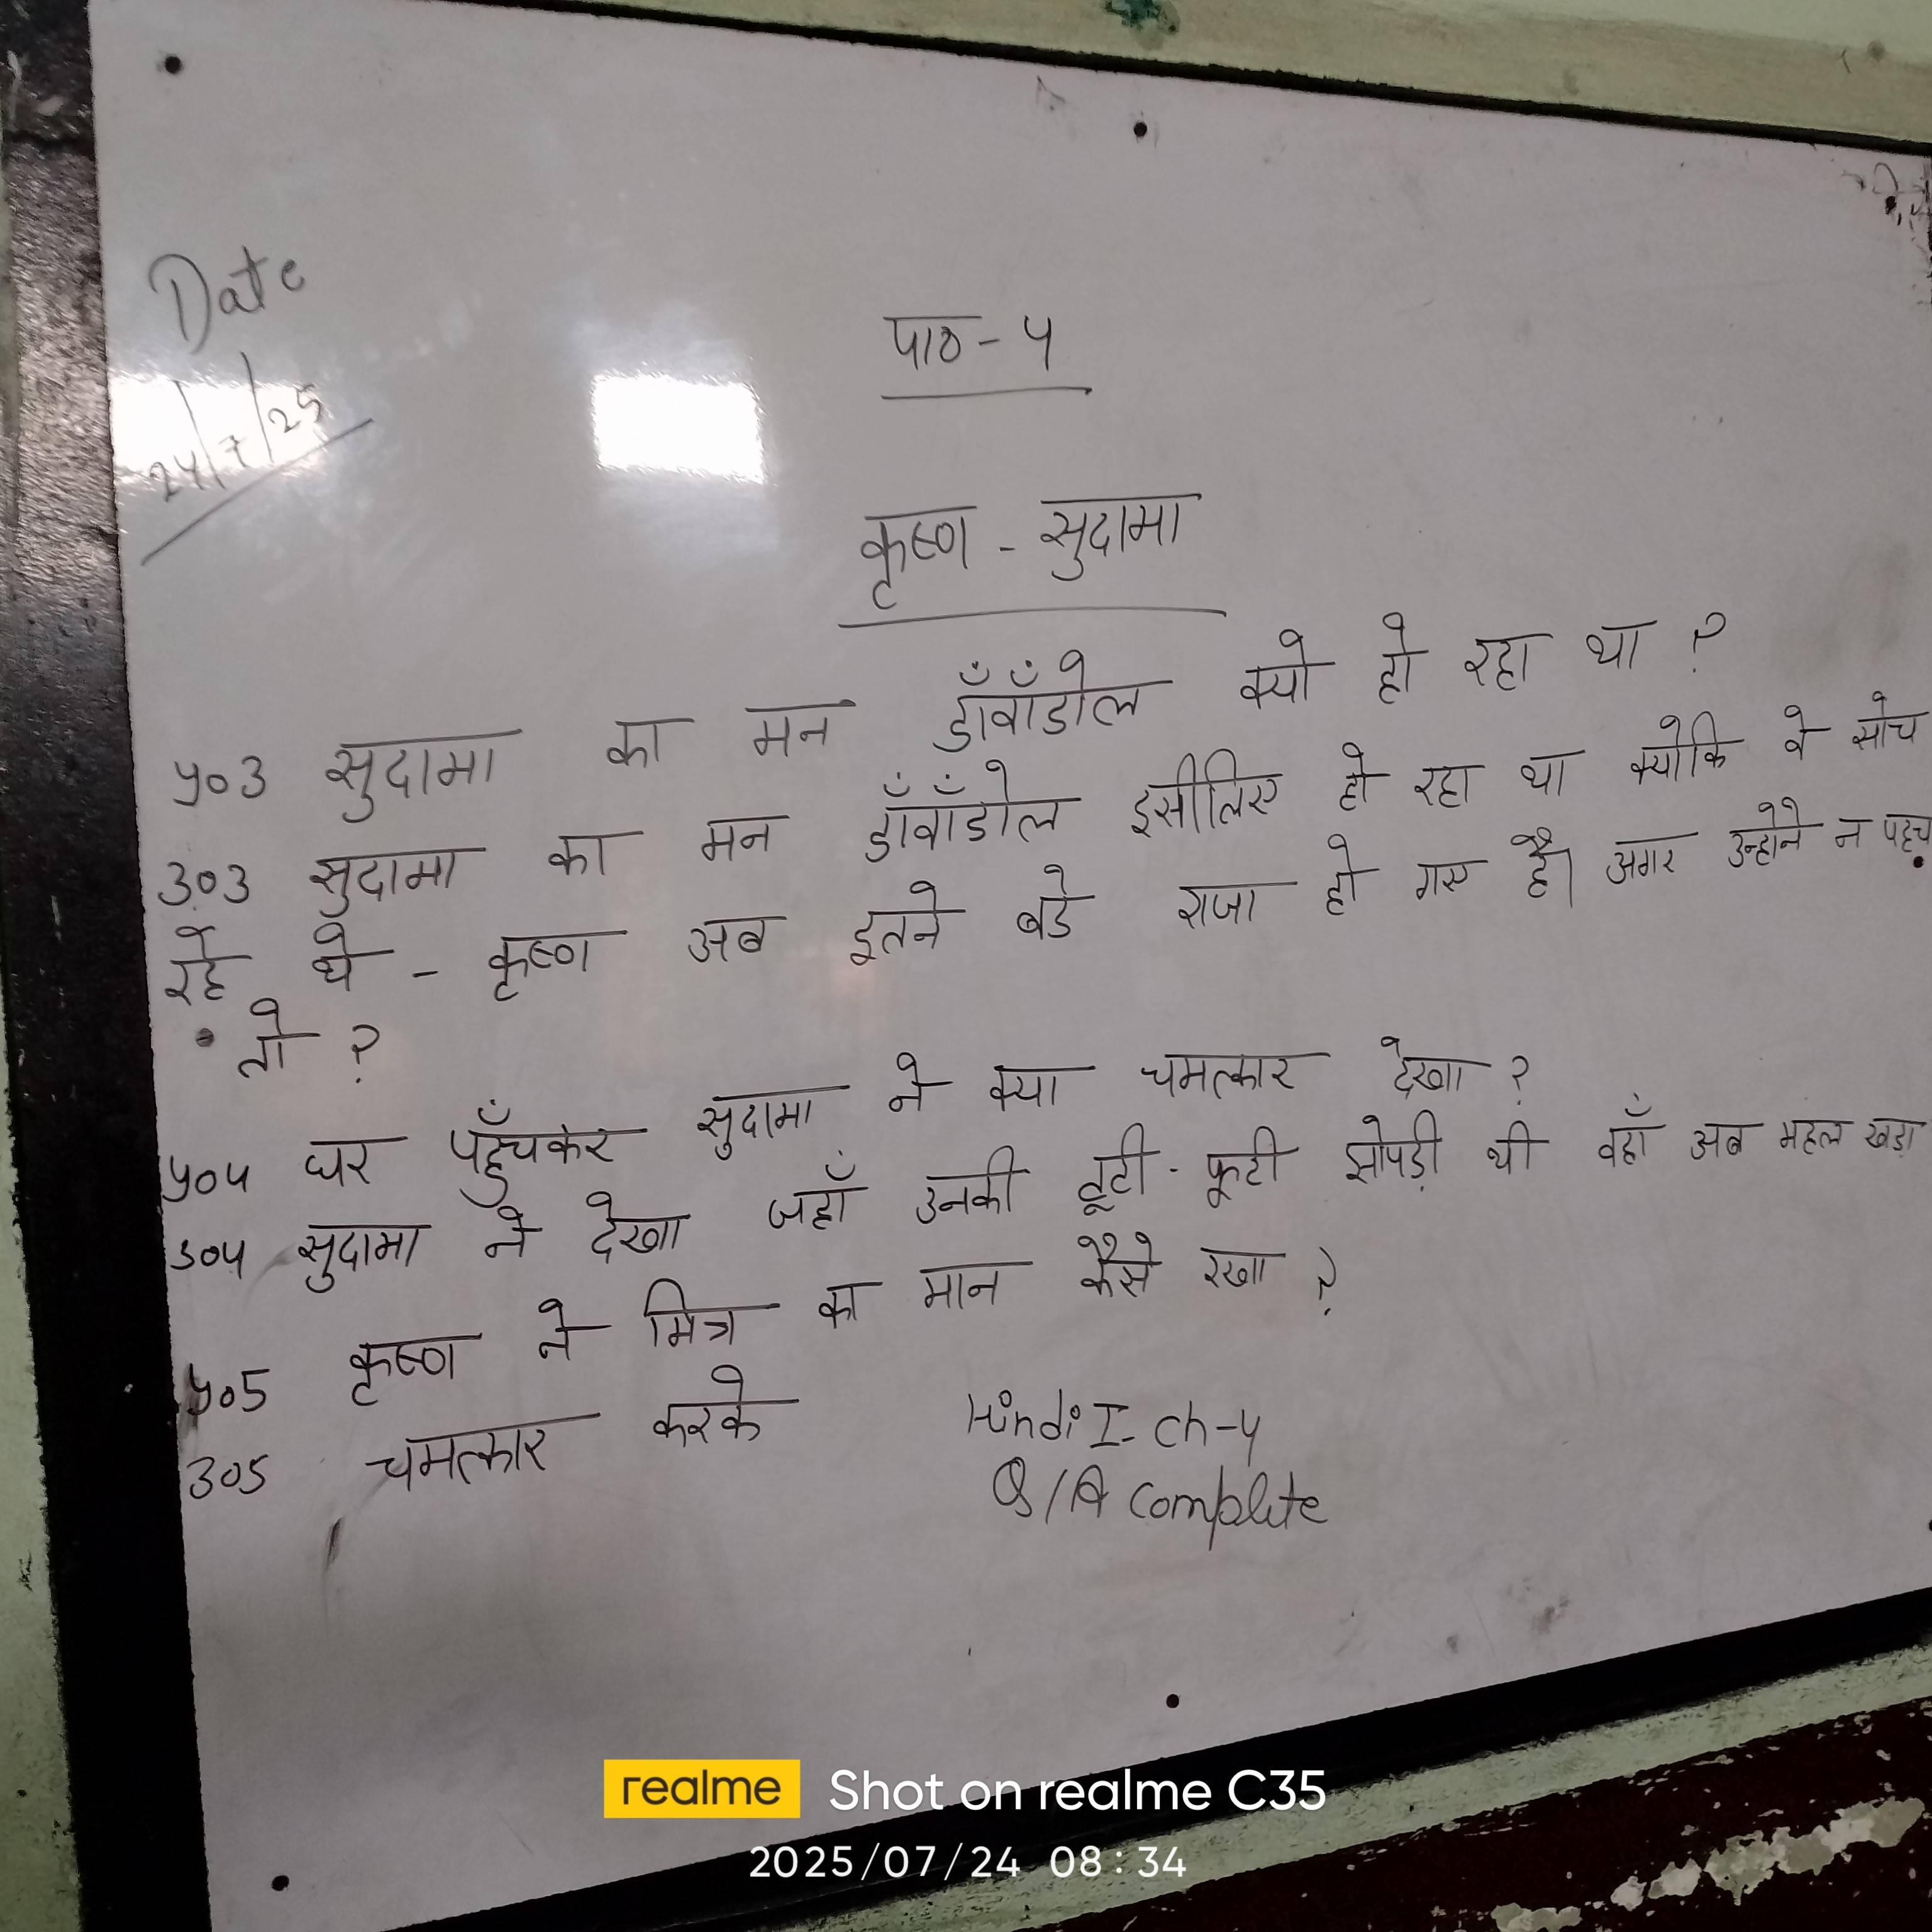 Date
24/7/25
पाठ - 4
कृष्ण - सुदामा
प्र०3 सुदामा का मन डाँवाँडोल क्यो हो रहा था ?
उ०3 सुदामा का मन डाँवाँडोल इसीलिए हो रहा था क्योकि वे सोच
रहे थे - कृष्ण अब इतने बडे राजा हो गए है। अगर उन्होने न
तो ?
प्र०4 घर पहुँचकर सुदामा ने क्या चमत्कार देखा ?
उ०4 सुदामा ने देखा जहाँ उनकी टूटी - फूटी झोपड़ी थी वहाँ अब महल खड़ा
प्र०5 कृष्ण ने मित्र का मान कैसे रखा ?
उ०5 चमत्कार करके
Hindi I - Ch-4
Q/A Complite
realme Shot on realme C35
2025/07/24 08:34